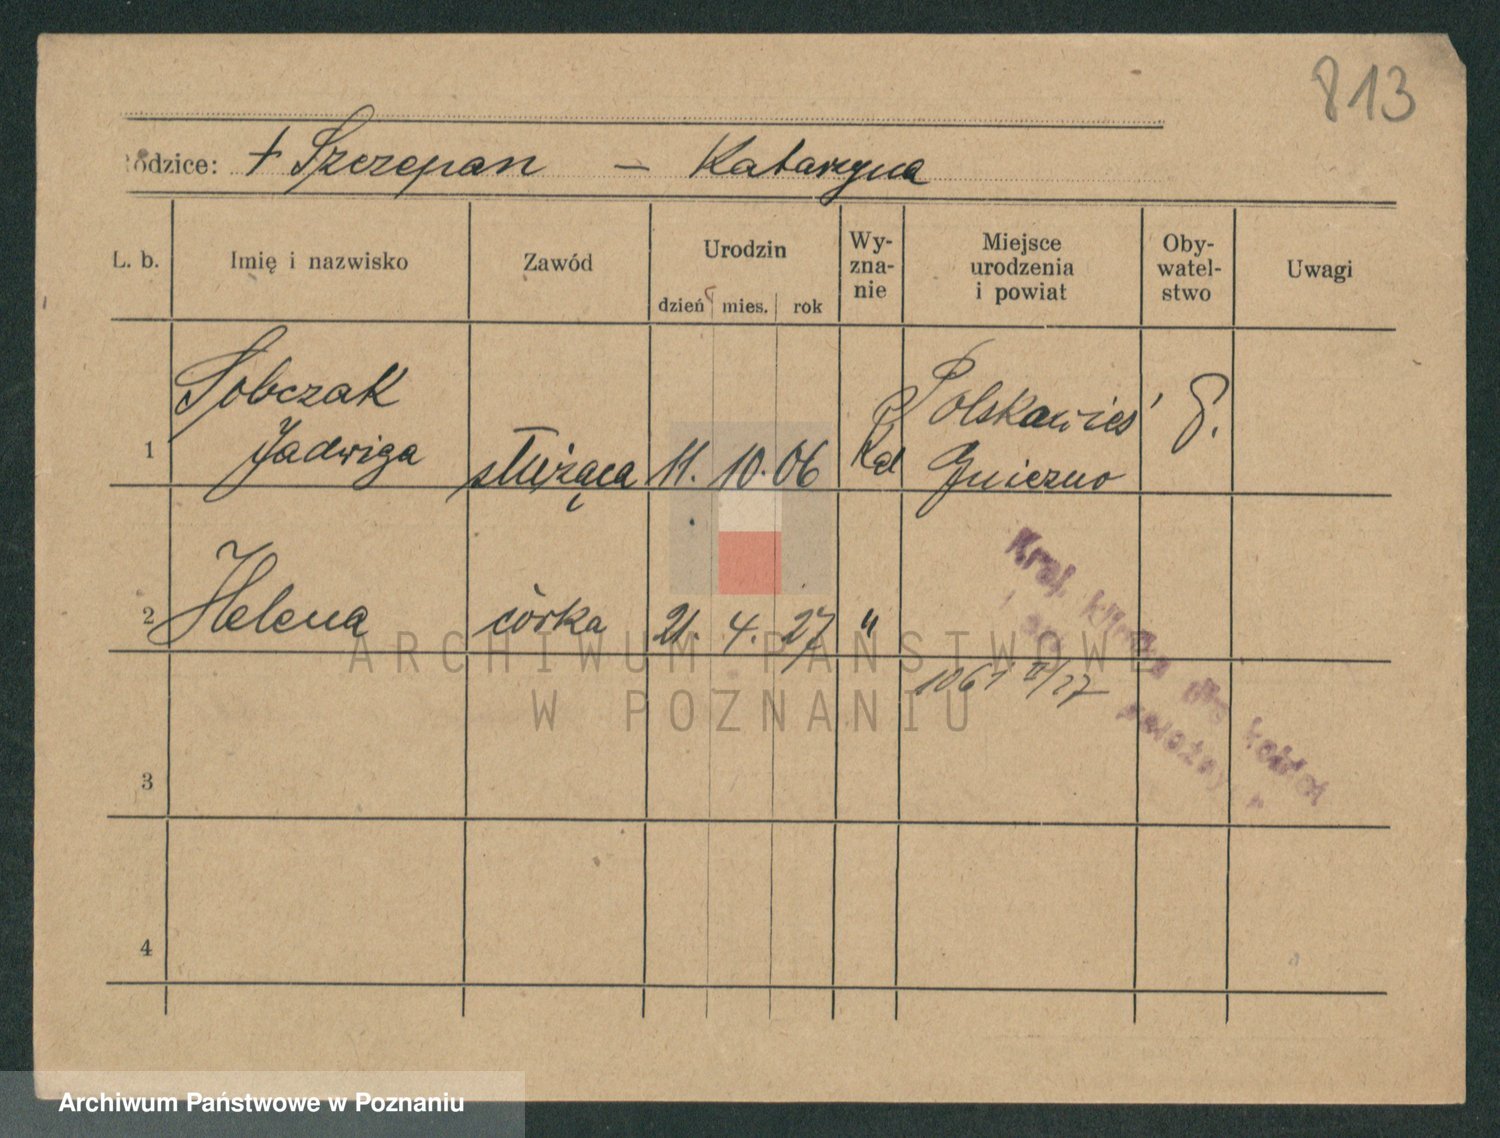 813
Rodzice: + Szczepan — Katarzyna
L. b. Imię i nazwisko Zawód Urodzin Wy-zna-nie Miejsce urodzenia i powiat Oby-watel-stwo Uwagi
dzień mies. rok
1 Sobczak Jadwiga służąca 11. 10. 06 Kat Polskawieś Gniezno P.
2 Helena córka 21. 4. 27 "
1061 II/27
Kraj. klinika dla kobiet
3
4
ARCHIWUM PAŃSTWOWE
W POZNANIU
Archiwum Państwowe w Poznaniu